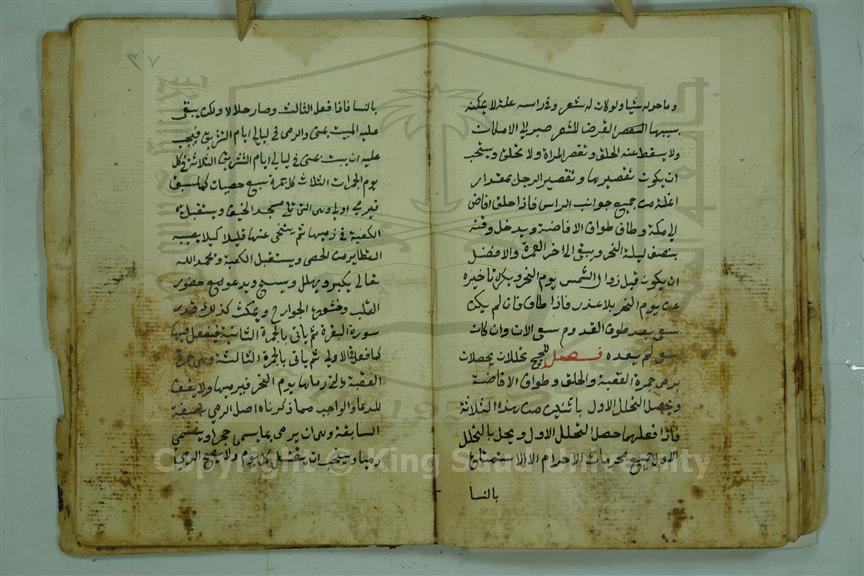 وما حوله شيا ولو كان له شعر وفي راسه علة لا يمكنه
بسببها التقصير لشعر صبر الى الامكان
ولا يسقط عنه الحلق وتقصر المراة ولا تحلق ويستحب
ان يكون تقصيرها وتقصير الرجل بمقدار
انملة من جميع جوانب الراس فاذا حلق افاض
الى مكة وطاف طواف الافاضة ويدخل وقته
بنصف ليلة النحر ويبقى الى اخر العمر والافضل
ان يكون قبل زوال الشمس يوم النحر ويكره تاخيره
عن يوم النحر بلا عذر فاذا طاف فان لم يكن
سعى بعد طواف القدوم سعى الان وان كان
سعى لم يعده فصل للحج تحللان يحصلان
برمى جمرة العقبة والحلق وطواف الافاضة
ويحصل التحلل الاول باثنين من هذه الثلاثة
فاذا فعلهما حصل التحلل الاول ويحل بالتحلل
الاول جميع محرمات الاحرام الا الاستمتاع
بالنسا
٣٧
بالنسا فاذا فعل الثالث وصار حلالا ولكن يبقى
عليه المبيت بمنى والرمى في ليالي ايام التشريق فيجب
عليه ان يبيت بمنى في ليالي ايام التشريق الثلاثة في كل
يوم الجمرات الثلاث كل جمرة سبع حصيات كما سبق
فيرمي اولى وهى التى تلي مسجد الخيف ويستقبل
الكعبة في رميها ثم يتنحى عنها قليلا كيلا يصيبه
المتطاير من الحصى ويستقبل الكعبة ويحمد الله
تعالى يكبر ويهلل ويسبح ويدعو مع حضور
القلب وخشوع الجوارح ويمكث كذلك قدر
سورة البقرة ثم ياتى بالجمرة الثانية فيفعل فيها
كما فعل في الاولى ثم ياتى بالجمرة الثالثة وهى جمرة
العقبة التى رماها يوم النحر فيرميها ولا يقف
للدعا والواجب مما ذكرناه اصل الرمي بصفته
السابقة وهى ان يرمى بما يسمى حجرا ويسمى
رميا ويستحب ان يغتسل كل يوم ولا يصح الرمي
Copyright © King Saud University
1957